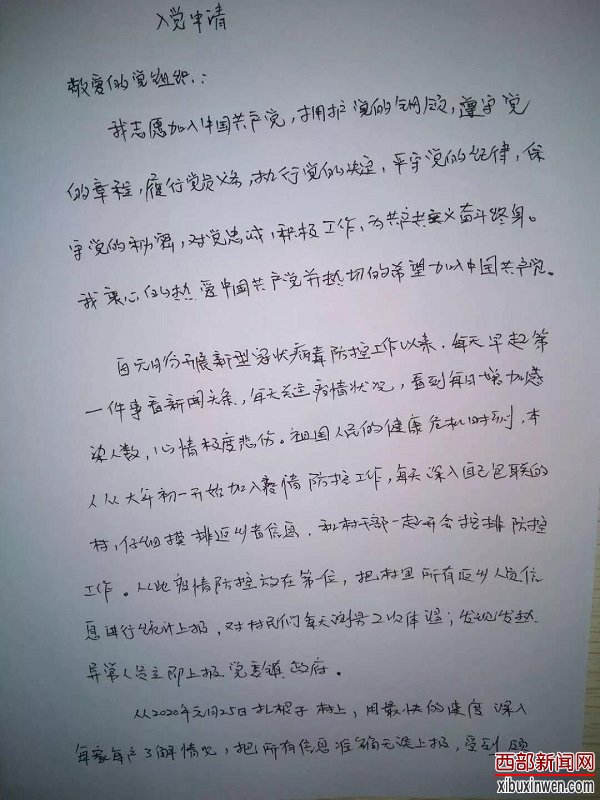 入党申请
敬爱的党组织：
我志愿加入中国共产党，拥护党的纲领，遵守党
的章程，履行党员义务，执行党的决定，严守党的纪律，保
守党的秘密，对党忠诚，积极工作，为共产主义奋斗终身。
我衷心的热爱中国共产党并热切的希望加入中国共产党。
自元月份开展新型冠状病毒防控工作以来，每天早起第
一件事看新闻头条，每天关注疫情状况，看到每日增加感
染人数，心情极度悲伤。祖国人民的健康危机时刻，本
人从大年初一开始加入疫情防控工作，每天深入自己包联的
村，仔细摸排返乡者信息，和村干部一起开会安排防控
工作。从此疫情防控放在第一位，把村里所有返乡人员信
息进行统计上报，对村民们每天测量2次体温；发现发热
异常人员立即上报党委镇政府。
从2020年元月25日扎根于村上，用最快的速度深入
每家每户了解情况，把所有信息准确无误上报，受到领
西部新闻网
xibuxinwen.com